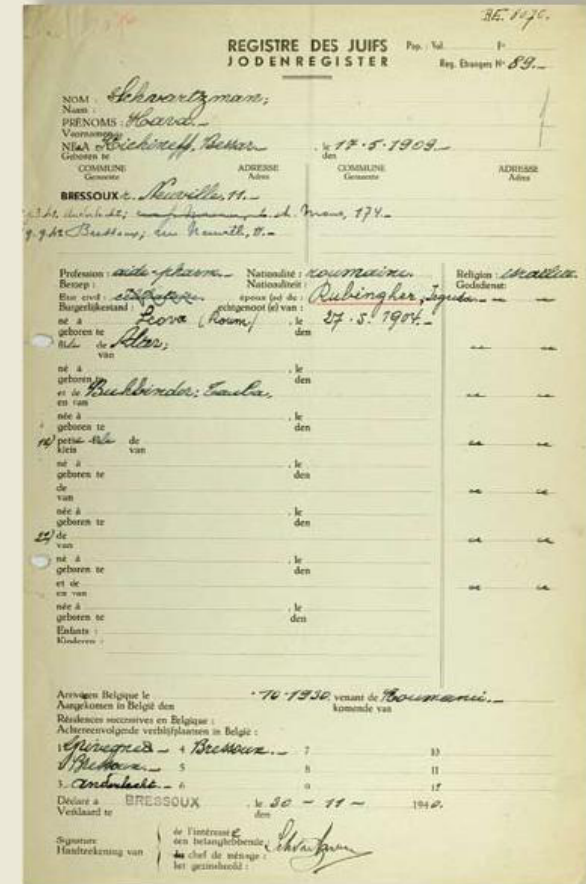 RE. 8070.
REGISTRE DES JUIFS Pop. : Vol. Fo
JODENREGISTER Reg. Etrangers No 89.-
NOM : Schvartzman;
Naam :
PRÉNOMS : Hava.-
Voornamen :
NÉ A Kichineff, Bessar. , le 17-5-1909-
Geboren te den
COMMUNE ADRESSE COMMUNE ADRESSE
Gemeente Adres Gemeente Adres
BRESSOUX r. Neuville, 11.-
ch. Mons, 174.-
Bressoux; rue Neuville, 11.-
Profession : aide-pharm.- Nationalité : roumaine. Religion : israélite.
Beroep : Nationaliteit : Godsdienst:
Etat civil : célibataire. époux (se) de : Rubingher, " "
Burgerlijkestand : echtgenoot (e) van :
né à Leova (Roum) , le 27-5-1904.-
geboren te den
de Alar; " "
van
né à , le
geboren te den
et de Buhbinder; Tauba, " "
en van
née à , le
geboren te den
1o) petit de " "
klein van
né à , le
geboren te den
de " "
van
née à , le
geboren te den
2o) de " "
van
né à , le
geboren te den
et de " "
en van
née à , le
geboren te den
Enfants :
Kinderen :
Arrivé en Belgique le -10-1930. venant de Roumanie.-
Aangekomen in België den komende van
Résidences successives en Belgique :
Achtereenvolgende verblijfplaatsen in België :
1 Grivegnée - 4 Bressoux.- 7 10
2 Bressoux.- 5 8 11
3 Anderlecht.- 6 9 12
Déclaré à BRESSOUX , le 30 - 11 - 1940.
Verklaard te den
Signature de l'intéressé
Handtekening van den belanghebbende
du chef de ménage :
het gezinshoofd :